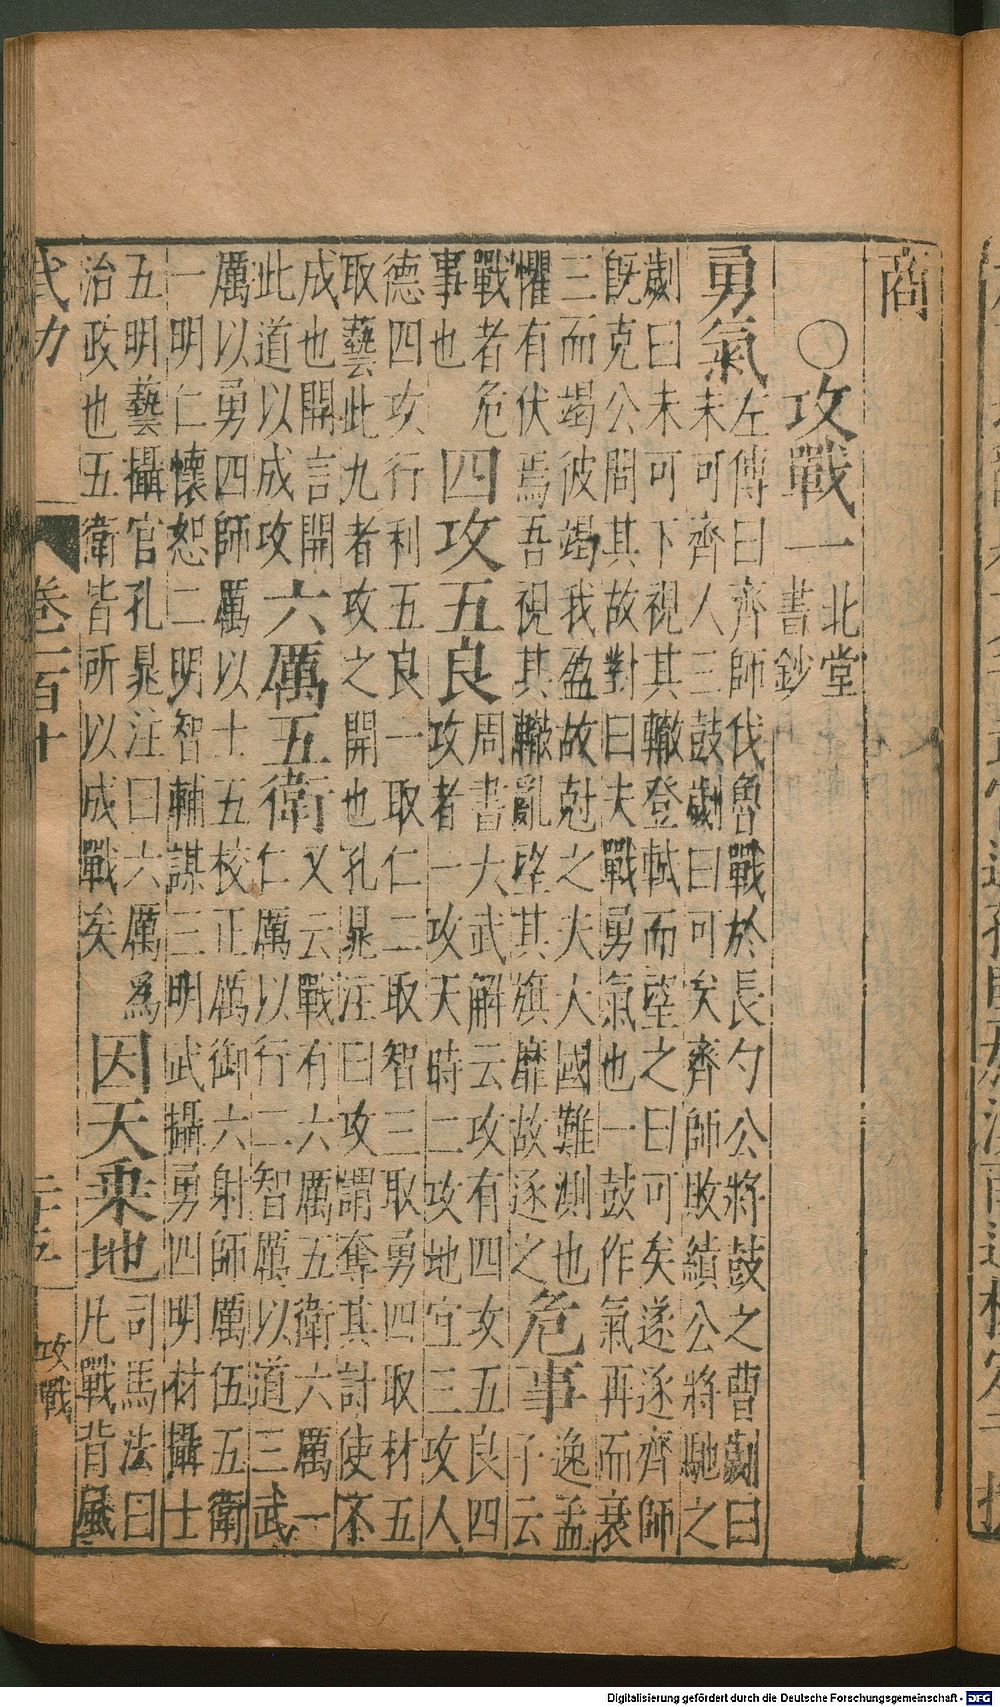 商
〇攻戰一
北堂
書鈔
勇氣
左傳曰齊師伐魯戰於長勺公將鼓之曹劌曰
未可齊人三鼓劌曰可矣齊師敗績公將馳之
劌曰未可下視其轍登軾而望之曰可矣遂逐齊師
既克公問其故對曰夫戰勇氣也一鼓作氣再而衰
三而竭彼竭我盈故尅之夫大國難測也
懼有伏焉吾視其轍亂望其旗靡故逐之
危事
逸孟
子云
戰者危
事也
四攻五良
周書大武解云攻有四攻五良四
攻者一攻天時二攻地宜三攻人
德四攻行利五良一取仁二取智三取勇四取材五
取藝此九者攻之開也孔晁注曰攻謂奪其計使不
成也開言開
此道以成攻
六厲五衛
又云戰有六厲五衛六厲一
仁厲以行二智厲以道三武
厲以勇四師厲以士五校正厲御六射師厲伍五衛
一明仁懷恕二明智輔謀三明武攝勇四明材攝士
五明藝攝官孔晁注曰六厲爲
治政也五衛皆所以成戰矣
因天乗地
司馬法曰
凡戰背風
武功 卷一百十 二十五 攻戰
Digitalisierung gefördert durch die Deutsche Forschungsgemeinschaft - DFG